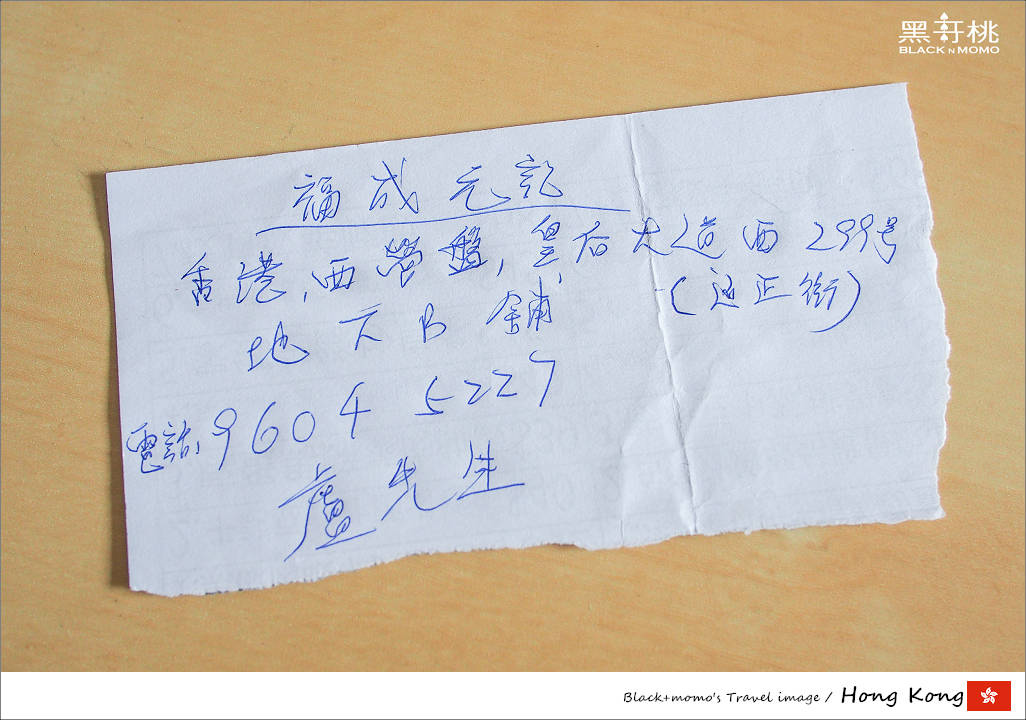 黑軒桃
BLACK N MOMO
福成元記
香港,西營盤,皇后大道西299号
(近正街)
地下B鋪
電話:9604 5227
盧先生
Black+momo's Travel image / Hong Kong